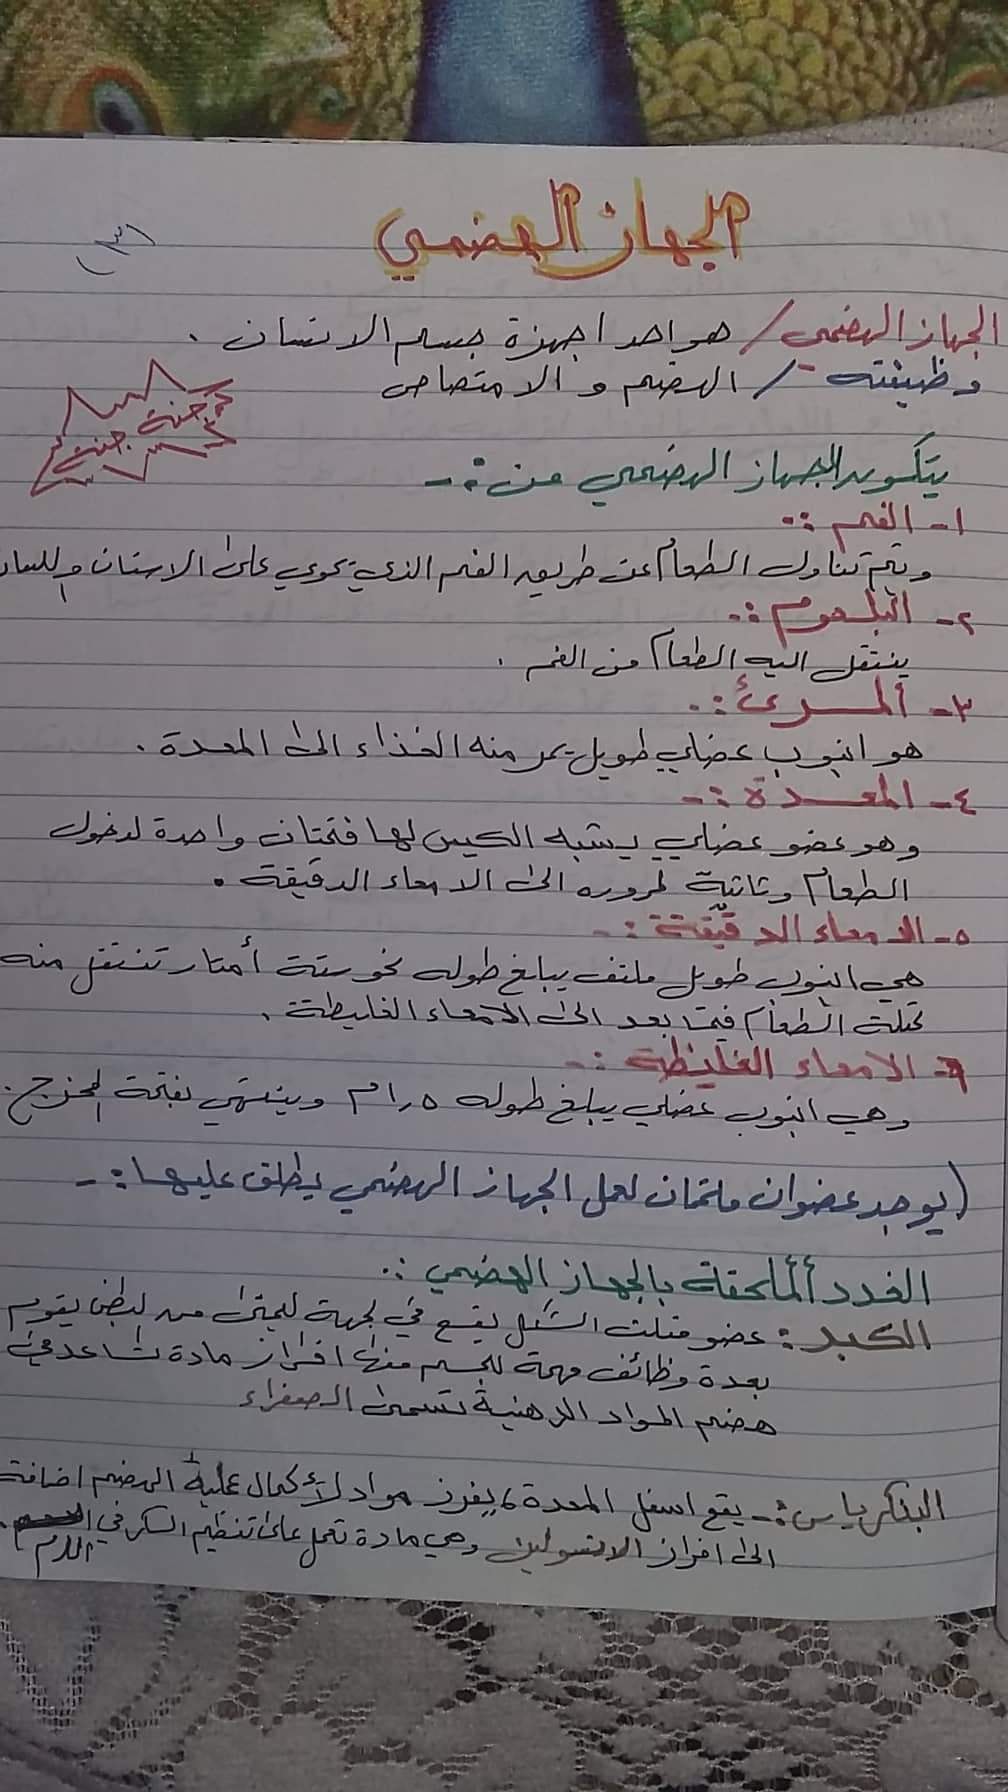 الجهاز الهضمي
(٣١)
الجهاز الهضمي / هو احد اجهزة جسم الانسان .
وظيفته / الهضم و الامتصاص
جنة جنة
يتكون الجهاز الهضمي من :-
١- الفم :-
ويتم تناول الطعام عن طريق الفم الذي يحوي على الاسنان واللسان
٢- البلعوم :-
ينتقل اليه الطعام من الفم .
٣- المرئ :-
هو انبوب عضلي طويل يمر منه الغذاء الى المعدة .
٤- المعدة :-
وهو عضو عضلي يشبه الكيس لها فتحتان واحدة لدخول
الطعام وثانية لمروره الى الامعاء الدقيقة .
٥- الامعاء الدقيقة :-
هي انبوب طويل ملتف يبلغ طوله نحو ستة أمتار تنتقل منه
كتلة الطعام فيما بعد الى الامعاء الغليظة .
٦- الامعاء الغليظة :-
وهي انبوب عضلي يبلغ طوله ١٫٥ م وينتهي بفتحة المخرج .
(يوجد عضوان متممان لعمل الجهاز الهضمي يطلق عليها :-
الغدد الملحقة بالجهاز الهضمي :-
الكبد : عضو مثلث الشكل يقع في لجهة ليمنى من لبطن يقوم
بعدة وظائف مهمة للجسم منها افراز مادة تساعد في
هضم المواد الدهنية تسمى الصفراء
البنكرياس :- يقع اسفل المعدة ، يفرز مواد لأكمال عملية الهضم اضافة
الى افراز الانسولين وهي مادة تعمل على تنظيم السكر في الدم .